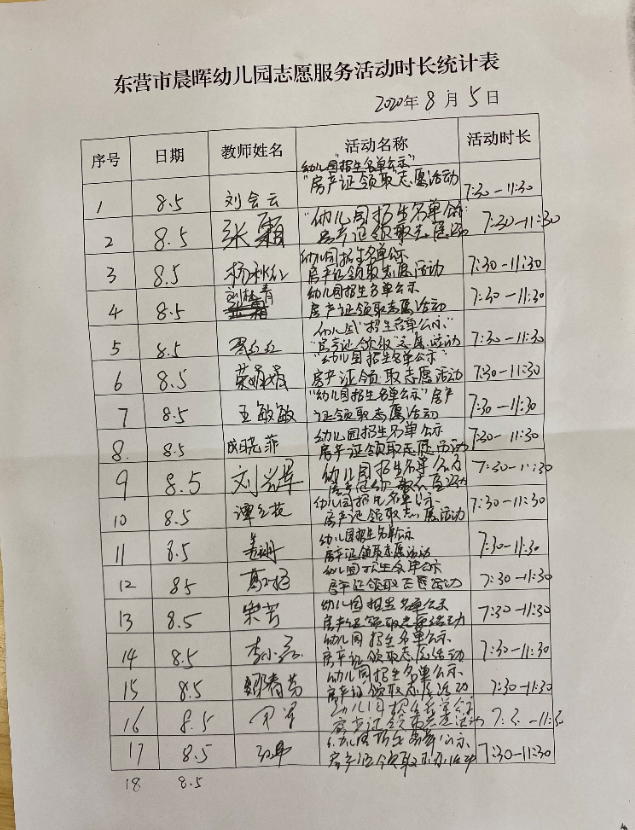 东营市晨晖幼儿园志愿服务活动时长统计表
2020年8月5日
序号 日期 教师姓名 活动名称 活动时长
幼儿园"招生名单公示"
1 8.5 刘会云 "房产证领取"志愿活动 7:30-11:30
"幼儿园招生名单公示
2 8.5 张霜 房产证领取志愿活动 7:30-11:30
幼儿园招生名单公示
3 8.5 杨秋红 房产证领取志愿活动 7:30-11:30
幼儿园招生名单公示
4 8.5 房产证领取志愿活动 7:30-11:30
幼儿园"招生名单公示"
5 8.5 "房产证领取"志愿活动 7:30-11:30
"幼儿园招生名单公示"
6 8.5 房产证领取志愿活动 7:30-11:30
"幼儿园招生名单公示"房产
7 8.5 王敏敏 证领取志愿活动 7:30-11:30
幼儿园招生名单公示
8. 8.5 成晓菲 房产证领取志愿活动 7:30-11:30
幼儿园招生名单公示
9 8.5 7:30-11:30
幼儿园招生名单公示
10 8.5 房产证领取志愿活动 7:30-11:30
幼儿园招生名单公示
11 8.5 房产证领取志愿活动 7:30-11:30
幼儿园招生名单公示
12 8.5 房产证领取志愿活动 7:30-11:30
幼儿园招生名单公示
13 8.5 宋芳 房产证领取志愿活动 7:30-11:30
幼儿园招生名单公示
14 8.5 房产证领取志愿活动 7:30-11:30
幼儿园招生名单公示
15 8.5 房产证领取志愿活动 7:30-11:30
幼儿园招生名单公示
16 8.5 房产证领取志愿活动 7:30-11:30
17 8.5 房产证领取 7:30-11:30
18 8.5